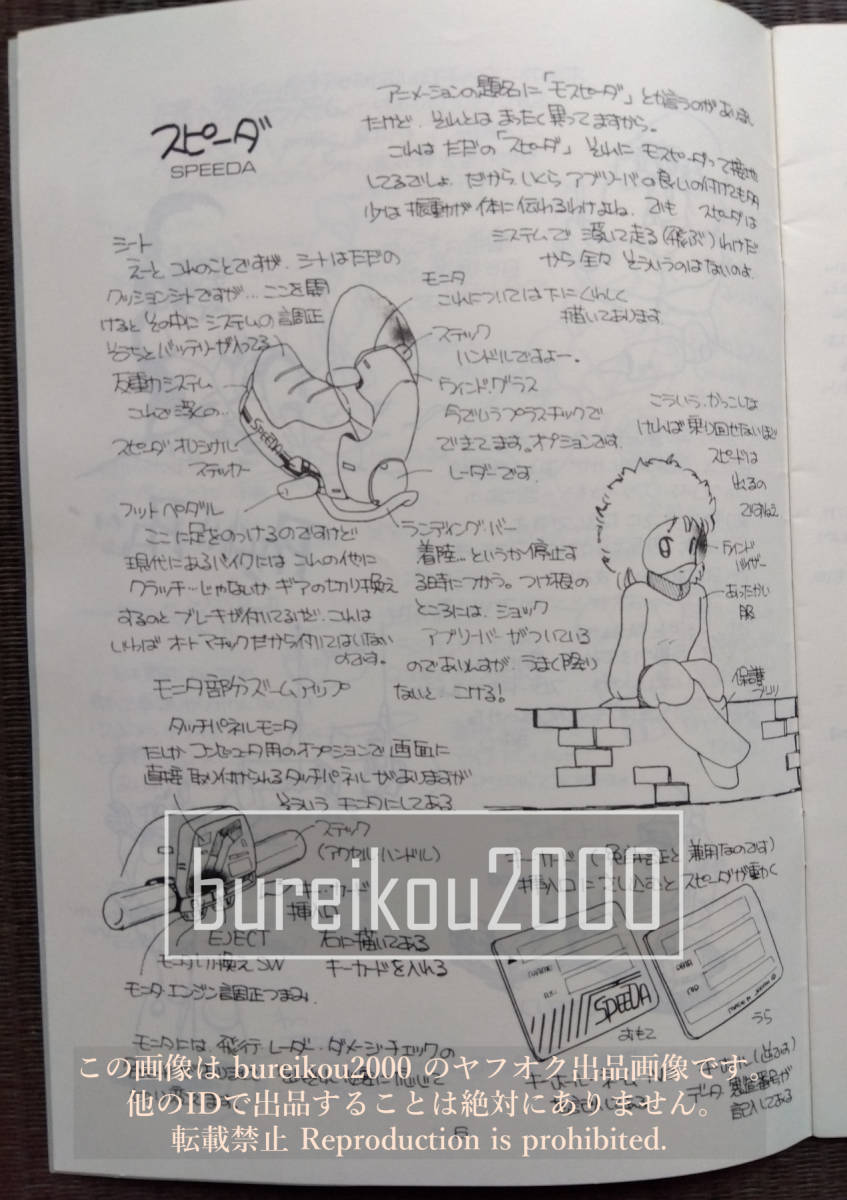 スピーダ
SPEEDA
アニメーションの題名に「モスピーダ」とか言うのがありました
けど、それとは まったく異ってますから。
これは ただの「スピーダ」それに モスピーダって接地
してるでしょ、だからいくら アブソーバの良いの付けても多
少は 振動が体に伝わるわけよね、でも スピーダは
システムで 浮いて走る(飛ぶ)わけだ
から全々 そういうのはないのよ
シート
えーと このことですが、シートはただの
クッションシートですが… ここを開
けると その中に システムの調正
そうちと バッテリーが入ってる
反重力システム
これで浮くの…
スピーダ オリジナル
ステッカー
フットペダル
ここに足をのっけるのですけど
現代にあるバイクには これの他に
クラッチ…じゃないか ギアの切り換え
するのと ブレーキが付いてるけど、これは
いわば オートマチックだから付いてはいない
のです。
モニタ
これについては下にくわしく
描いてあります
スティック
ハンドルですよー。
ウィンド・グラス
今でいうプラスチックで
できてます。オプションです
レーダーです
ランディング・バー
着陸…というか停止す
る時につかう。つけ根の
ところには、ショック
アブソーバーがついている
のでありますが、うまく降り
ないと こける!
こういう、かっこしな
ければ 乗り回せないほど
スピードは
出るの
ですねえ
ウィンド
バイザー
あったかい
服
保護
モニタ部分ズームアップ
タッチパネルモニタ
たしか コンピュータ用のオプションで 画面に
直接 取り付けられるタッチパネル がありますが
そういう モニタにしてある
スティック
(アクセル・ハンドル)
カード
挿入口
EJECT
右に描いてある
キーカードを入れる
モニタ切換えSW
モニタ・エンジン調正つまみ
キーカード (免許証と 兼用なのです)
挿入口に さし込むと スピーダが動く
NAME
SPEEDA
おもて
うら
モニタには 飛行・レーダー・ダメージ・チェックの
データ 製造番号が
記入してある
6
bureikou2000
この画像は bureikou2000 のヤフオク出品画像です。
他のIDで出品することは絶対にありません。
転載禁止 Reproduction is prohibited.